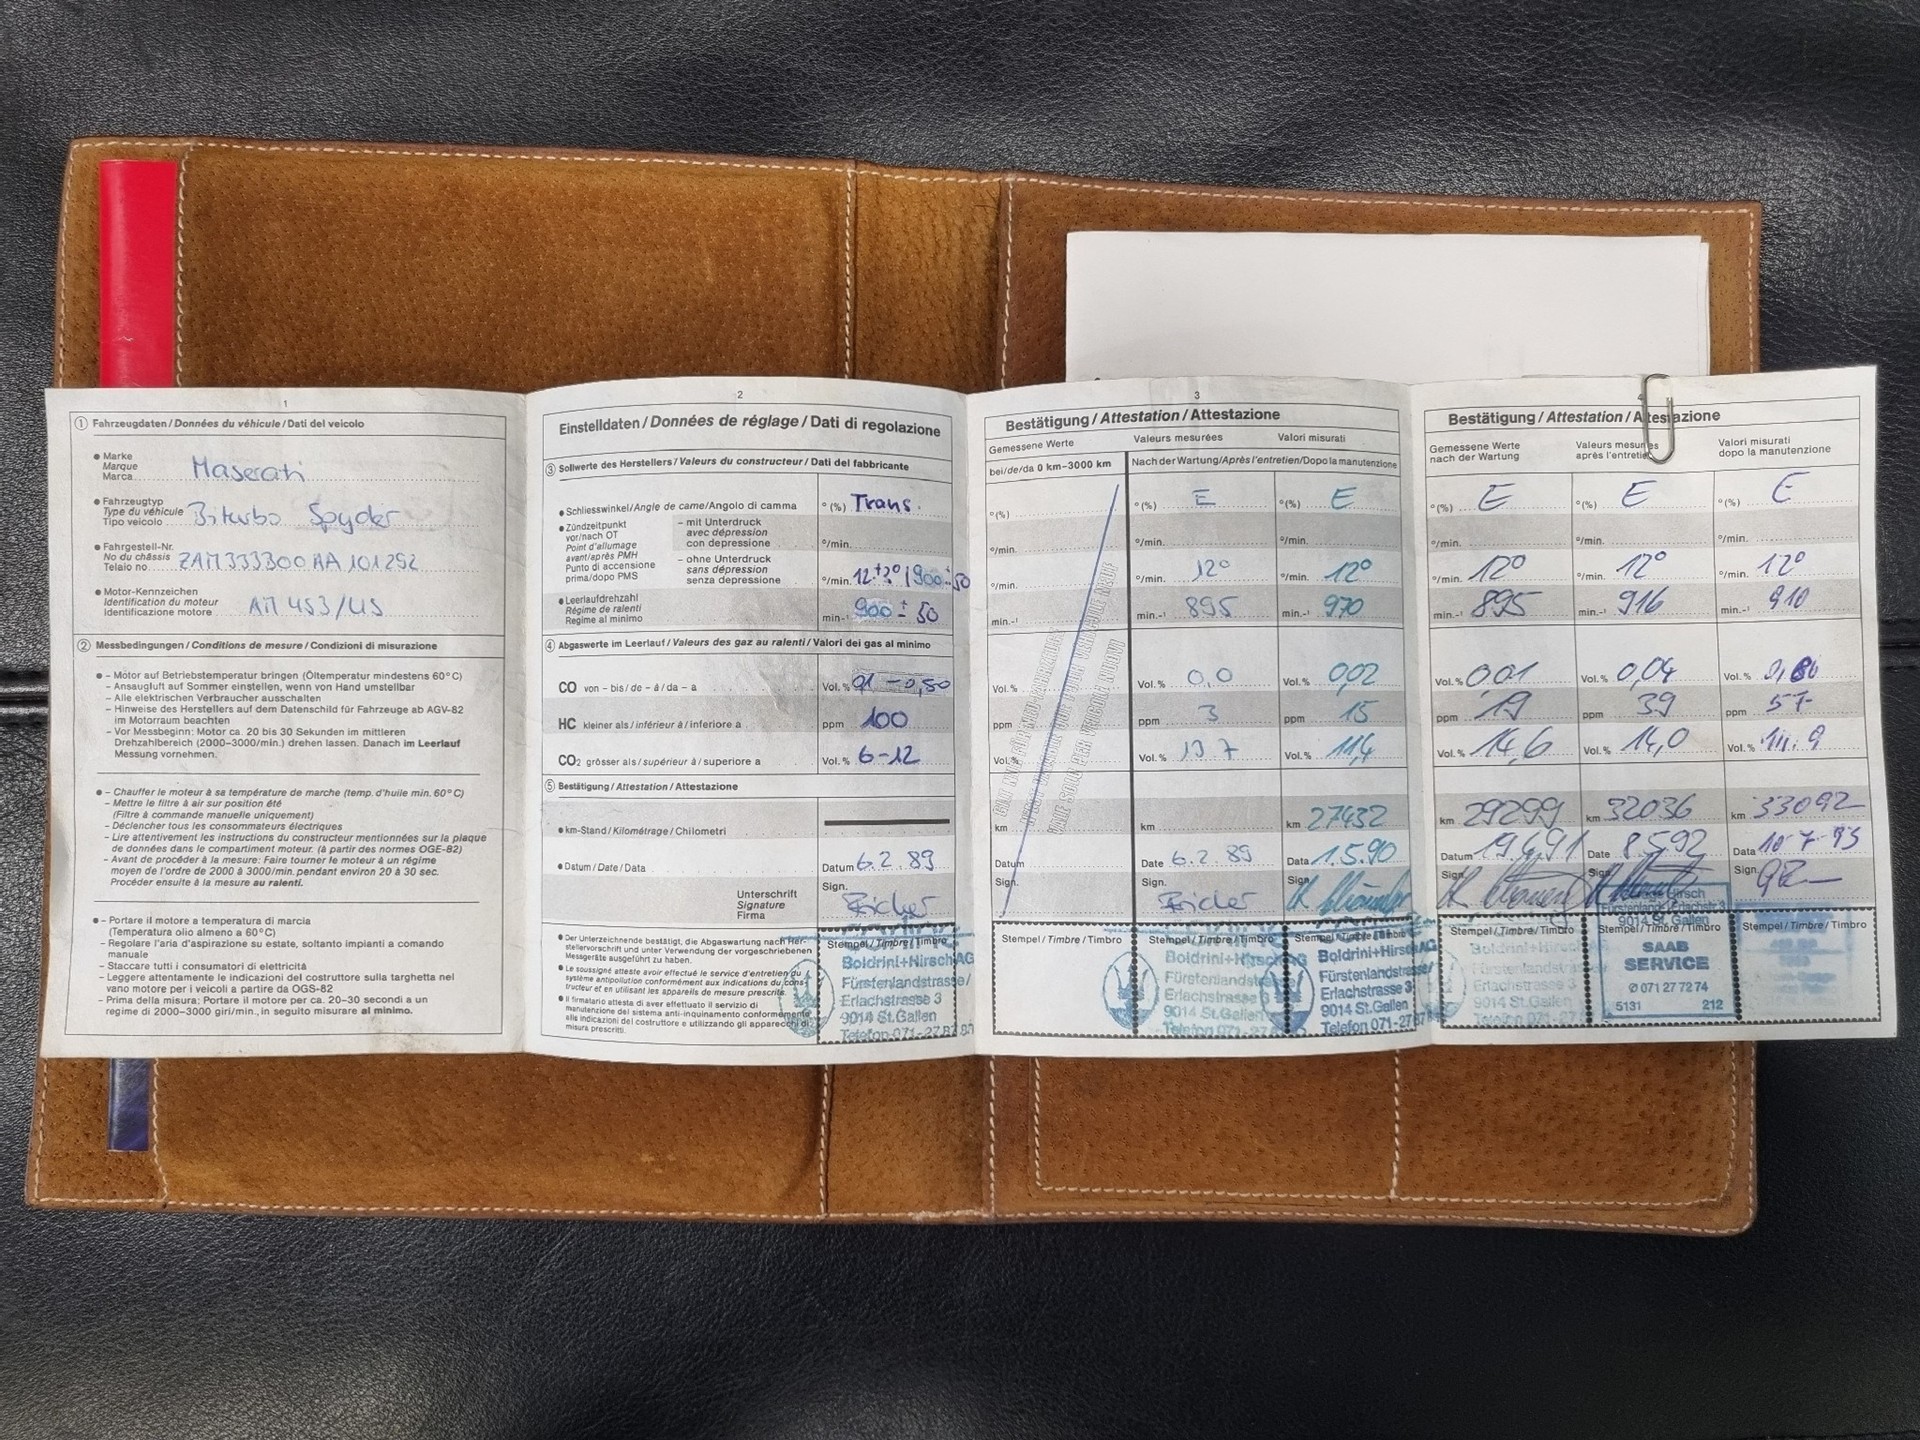 1
① Fahrzeugdaten / Données du véhicule / Dati del veicolo
● Marke
Marque
Marca
Maserati
● Fahrzeugtyp
Type du véhicule
Tipo veicolo
Biturbo Spyder
● Fahrgestell-Nr.
No du châssis
Telaio no.
ZAM333300AA101292
● Motor-Kennzeichen
Identification du moteur
Identificazione motore
AM 453/US
② Messbedingungen / Conditions de mesure / Condizioni di misurazione
● – Motor auf Betriebstemperatur bringen (Öltemperatur mindestens 60°C)
– Ansaugluft auf Sommer einstellen, wenn von Hand umstellbar
– Alle elektrischen Verbraucher ausschalten
– Hinweise des Herstellers auf dem Datenschild für Fahrzeuge ab AGV-82
im Motorraum beachten
– Vor Messbeginn: Motor ca. 20 bis 30 Sekunden im mittleren
Drehzahlbereich (2000–3000/min.) drehen lassen. Danach im Leerlauf
Messung vornehmen.
● – Chauffer le moteur à sa température de marche (temp. d'huile min. 60°C)
– Mettre le filtre à air sur position été
(Filtre à commande manuelle uniquement)
– Déclencher tous les consommateurs électriques
– Lire attentivement les instructions du constructeur mentionnées sur la plaque
de données dans le compartiment moteur. (à partir des normes OGE-82)
– Avant de procéder à la mesure: Faire tourner le moteur à un régime
moyen de l'ordre de 2000 à 3000/min. pendant environ 20 à 30 sec.
Procéder ensuite à la mesure au ralenti.
● – Portare il motore a temperatura di marcia
(Temperatura olio almeno a 60°C)
– Regolare l'aria d'aspirazione su estate, soltanto impianti a comando
manuale
– Staccare tutti i consumatori di elettricità
– Leggere attentamente le indicazioni del costruttore sulla targhetta nel
vano motore per i veicoli a partire da OGS-82
– Prima della misura: Portare il motore per ca. 20–30 secondi a un
regime di 2000–3000 giri/min., in seguito misurare al minimo.
2
Einstelldaten / Données de réglage / Dati di regolazione
③ Sollwerte des Herstellers / Valeurs du constructeur / Dati del fabbricante
● Schliesswinkel / Angle de came / Angolo di camma
°(%) Trans.
● Zündzeitpunkt
vor/nach OT
Point d'allumage
avant/après PMH
Punto di accensione
prima/dopo PMS
– mit Unterdruck
avec dépression
con depressione
°/min.
– ohne Unterdruck
sans dépression
senza depressione
°/min. 12±2° / 900±50
● Leerlaufdrehzahl
Régime de ralenti
Regime al minimo
min⁻¹ 900 ± 50
④ Abgaswerte im Leerlauf / Valeurs des gaz au ralenti / Valori dei gas al minimo
CO von – bis / de – à / da – a Vol.% 0,1 – 0,50
HC kleiner als / inférieur à / inferiore a ppm 100
CO₂ grösser als / supérieur à / superiore a Vol.% 6–12
⑤ Bestätigung / Attestation / Attestazione
● km-Stand / Kilométrage / Chilometri
● Datum / Date / Data
Datum 6.2.89
Unterschrift
Signature
Firma
Sign.
● Der Unterzeichnende bestätigt, die Abgaswartung nach Her-
stellervorschrift und unter Verwendung der vorgeschriebenen
Messgeräte ausgeführt zu haben.
● Le soussigné atteste avoir effectué le service d'entretien du
système antipollution conformément aux indications du cons-
tructeur et en utilisant les appareils de mesure prescrits.
● Il firmatario attesta di aver effettuato il servizio di
manutenzione del sistema anti-inquinamento conformemente
alle indicazioni del costruttore e utilizzando gli apparecchi di
misura prescritti.
Stempel / Timbre / Timbro
Boldrini+Hirsch AG
Fürstenlandstrasse/
Erlachstrasse 3
9014 St.Gallen
Telefon 071-27
3
Bestätigung / Attestation / Attestazione
Gemessene Werte Valeurs mesurées Valori misurati
bei/de/da 0 km–3000 km Nach der Wartung/Après l'entretien/Dopo la manutenzione
°(%) °(%) E °(%) E
°/min. °/min. °/min.
°/min. °/min. 12° °/min. 12°
min.⁻¹ min.⁻¹ 895 min.⁻¹ 970
Vol.% Vol.% 0,0 Vol.% 0,02
ppm ppm 3 ppm 15
Vol.% Vol.% 13.7 Vol.% 11,4
km km km 27432
Datum Date 6.2.89 Data 1.5.90
Sign. Sign. Sign.
VALE SOLO PER VEICOLI NUOVI
Stempel / Timbre / Timbro Stempel / Timbre / Timbro Stempel / Timbre / Timbro
Boldrini+Hirsch AG
Fürstenlandstrasse/
Erlachstrasse 3
9014 St.Gallen
Telefon 071-27
Boldrini+Hirsch AG
Fürstenlandstrasse/
Erlachstrasse 3
9014 St.Gallen
Telefon 071-27
Bestätigung / Attestation / Attestazione
Gemessene Werte
nach der Wartung
Valeurs mesurées
après l'entretien
Valori misurati
dopo la manutenzione
°(%) E °(%) E °(%) E
°/min. °/min. °/min.
°/min. 12° °/min. 12° °/min. 12°
min.⁻¹ 895 min.⁻¹ 916 min.⁻¹ 910
Vol.% 0,01 Vol.% 0,04 Vol.%
ppm 19 ppm 39 ppm 57
Vol.% 14,6 Vol.% 14,0 Vol.% 14.9
km 29299 km 32036 km 33092
Datum 19.4.91 Date 8.5.92 Data 10-7-93
Sign. Sign. Sign.
Stempel / Timbre / Timbro Stempel / Timbre / Timbro Stempel / Timbre / Timbro
Boldrini+Hirsch
Fürstenlandstrasse
Erlachstrasse 3
9014 St.Gallen
Hirsch
Fürstenland/Erlachstr. 3
9014 St. Gallen
SAAB
SERVICE
✆ 071 27 72 74
5131 212